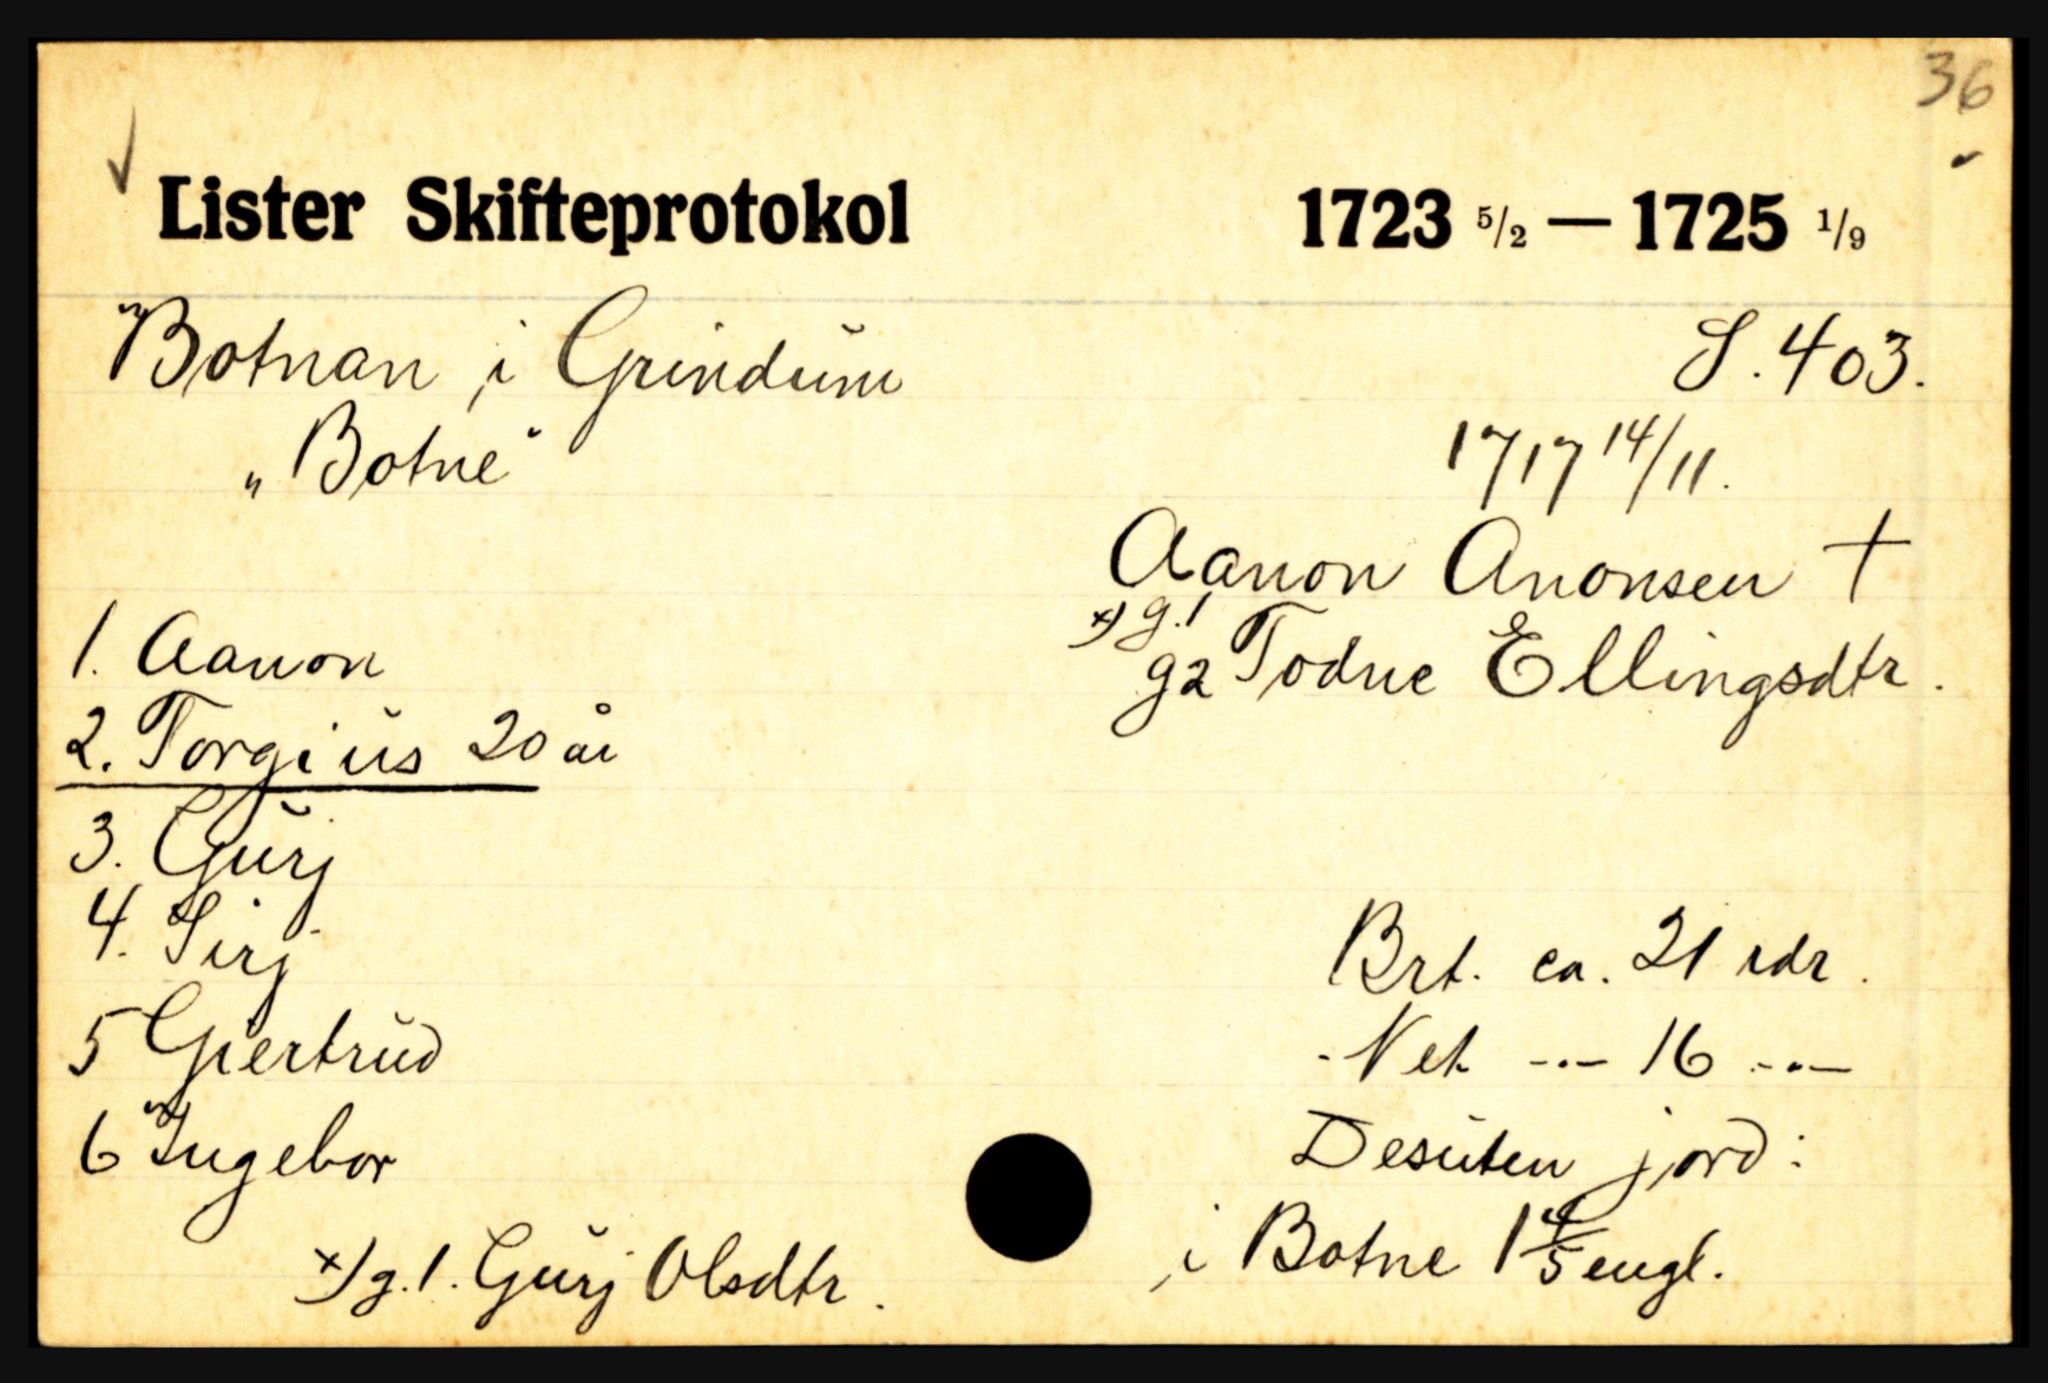 36
Lister Skifteprotokol 1723 5/2 — 1725 1/9
Botnan i Grindum S. 403.
"Botne" 1717 14/11.
Aanon Anonsen †
x) g.1
g2 Todne Ellingsdtr.
1. Aanon
2. Torgius 20 år
3. Gurj
4. Sirj
5 Giertrud
6 Ingebor
x) g.1. Gurj Olsdtr.
Brt. ca. 21 rdr.
Net -.- 16 -.-
Desuten jord:
i Botne 1 4/5 engl.